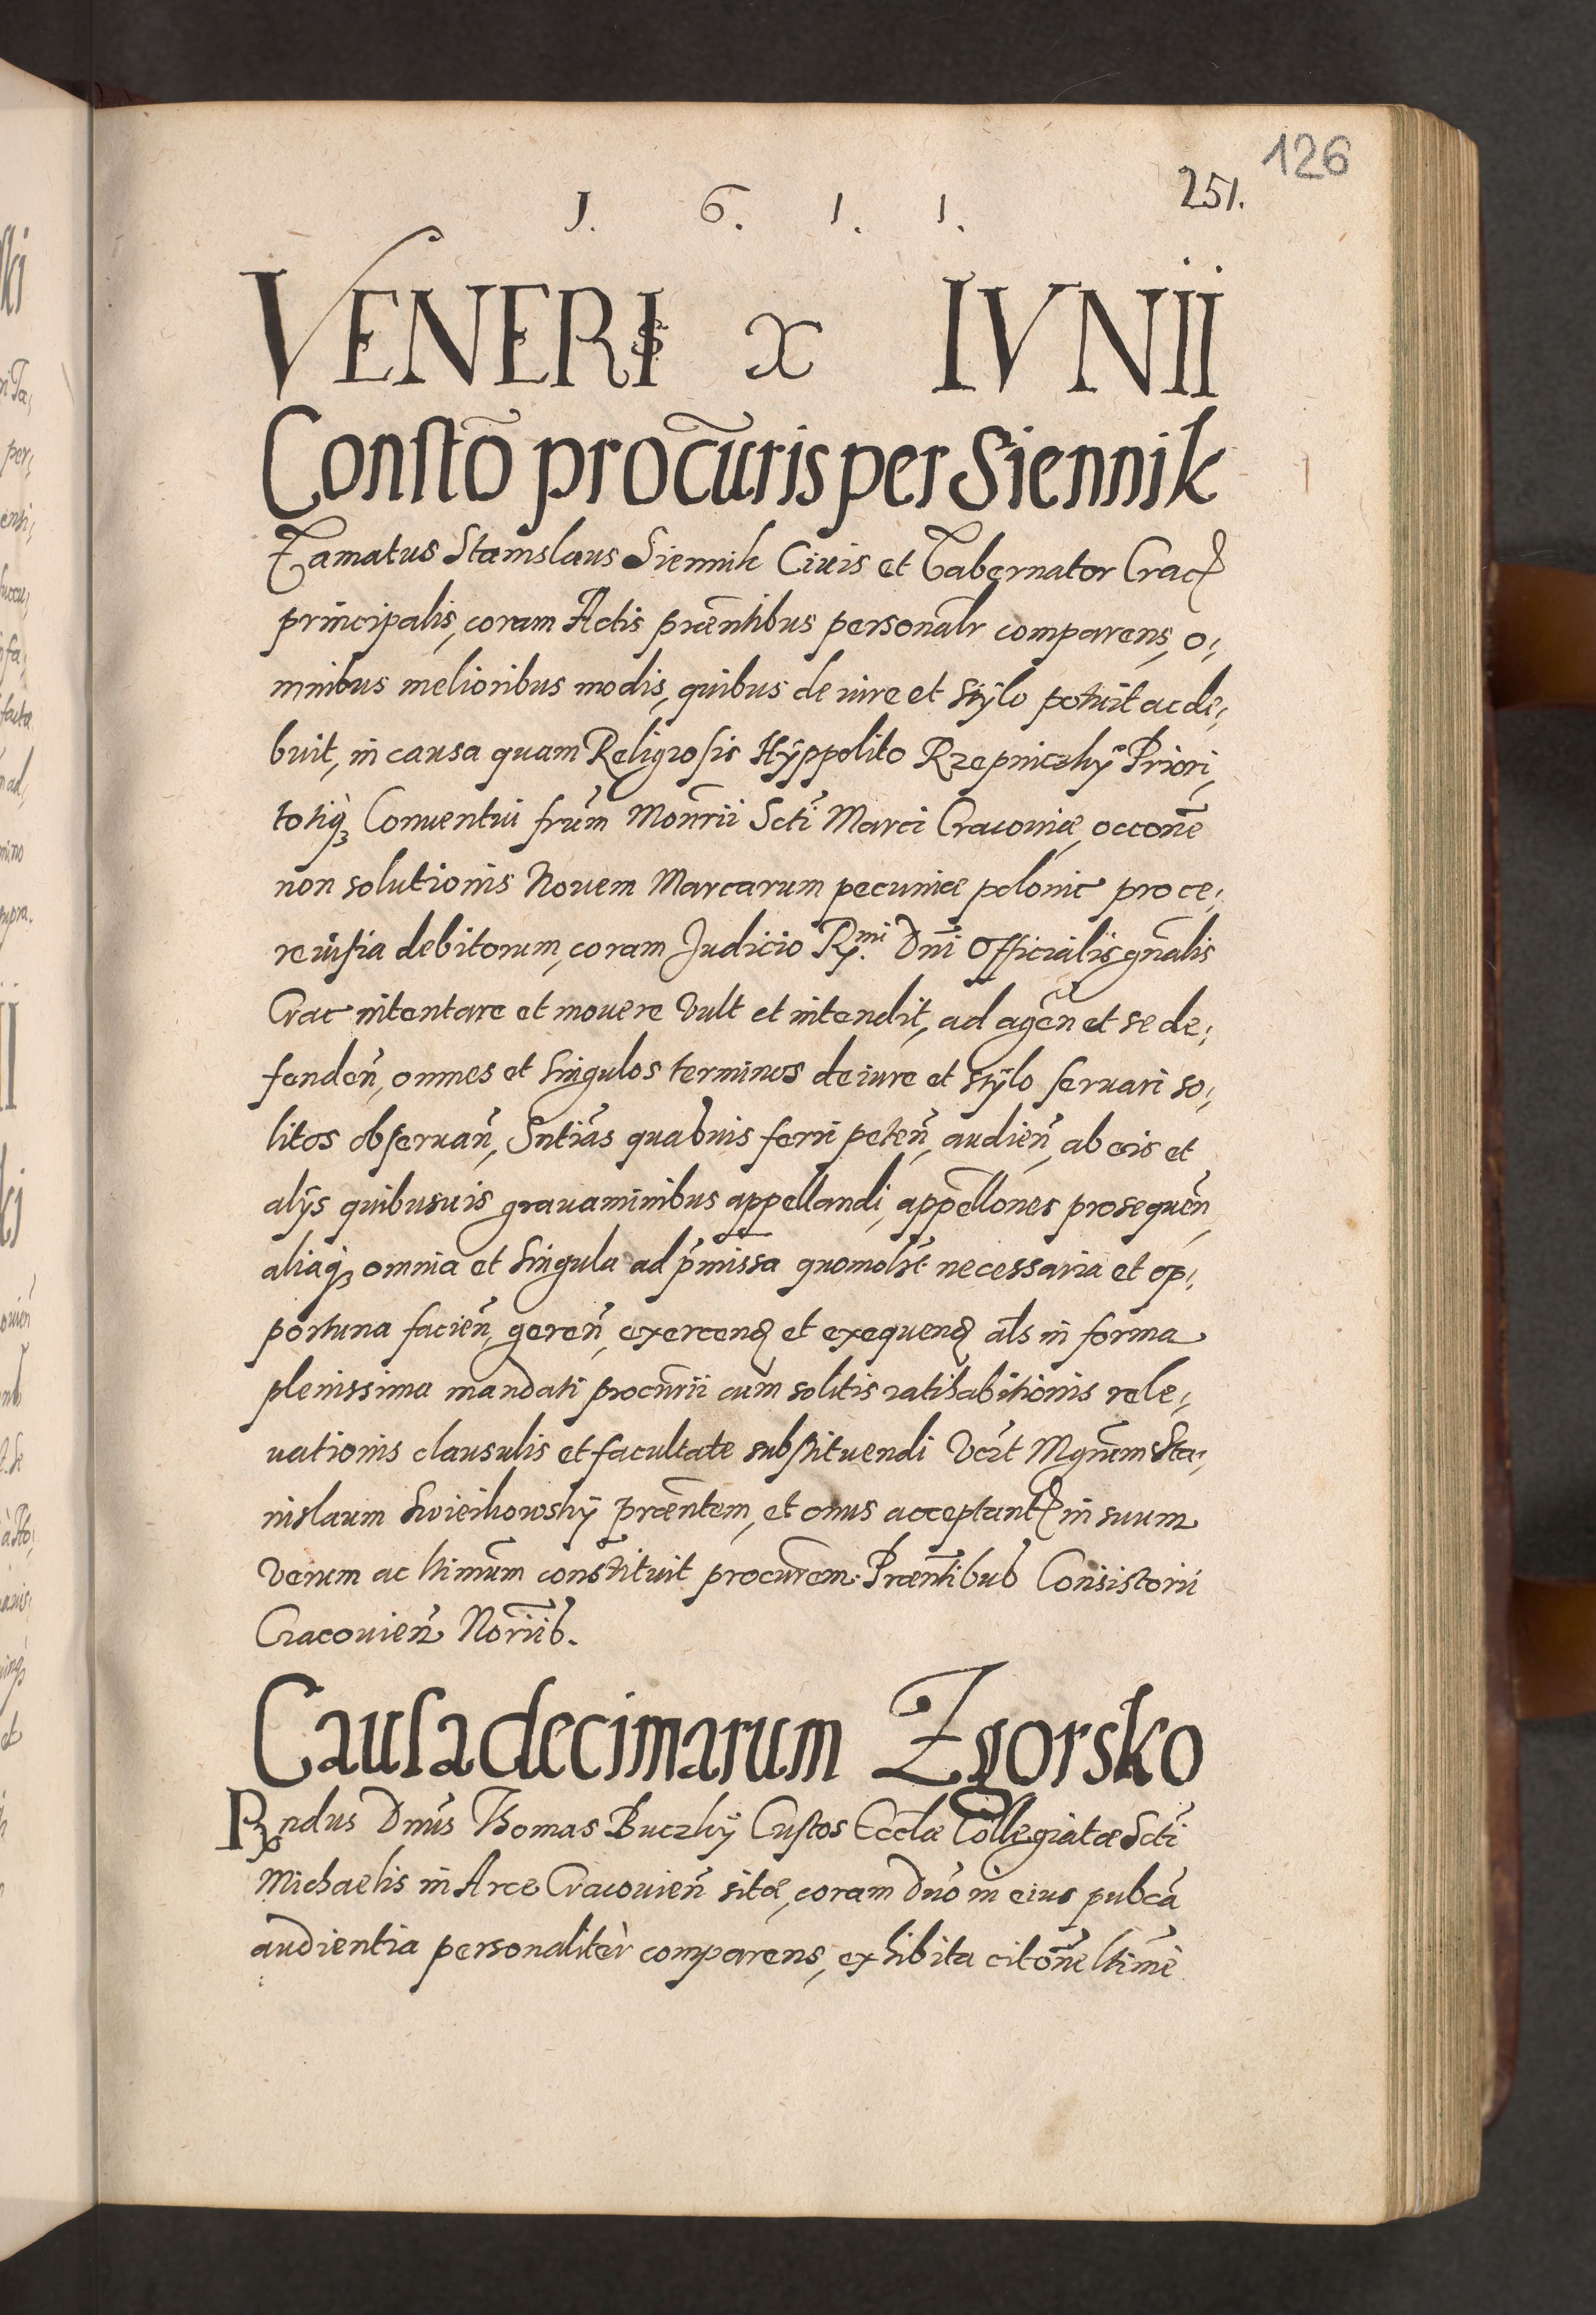 126
251.
1. 6. 1. 1.
VENERIS X IVNII
Constõ procuris per Siennik
Famatus Stanislaus Siennik Ciuis et Tabernator Crac
principalis, coram Actis præntibus personalr comparens, o,
mnibus melioribus modis, quibus de iure et stÿlo potuit ac de,
buit, in causa quam Religiosis Hÿppolito Rzepniczkÿ Priori,
totiq; Conuentui frum Monrii Scti Marci Cracouiæ, occone
non solutionis Nouem Marcarum pecuniæ polonic pro ce,
reuisia debitorum, coram Judicio R.mi Dni Officialis gnalis
Crac intentare et mouere Vult et intendit, ad agen et se de,
fenden, omnes et singulos terminos de iure et stÿlo seruari so,
litos obseruan, Sntias quasuis ferri peten, audien, ab eis et
alÿs quibusuis grauaminibus appellandi, appellones prosequen,
aliaq; omnia et singula ad pmissa quomolt necessaria et op,
portuna facien, geren, exercend et exequend als in forma
plenissima mandati procurii cum solitis ratihabitionis rele,
uationis clausulis et facultate substituendi Vcrt Mgrum Sta,
nislaum Swieikowskÿ præntem, et onus acceptant in suum
verum ac ltimum constituit procurem. Præntibus Consistorii
Cracouien Noriib.
Causa decimarum Zgorsko
Rndus Dnus Thomas Buczkÿ Custos Eccla Collegiatæ Scti
Michaelis in Arce Cracouien sitæ, coram Dno in eius pubca
audientia personaliter comparens, exhibita citone ltime